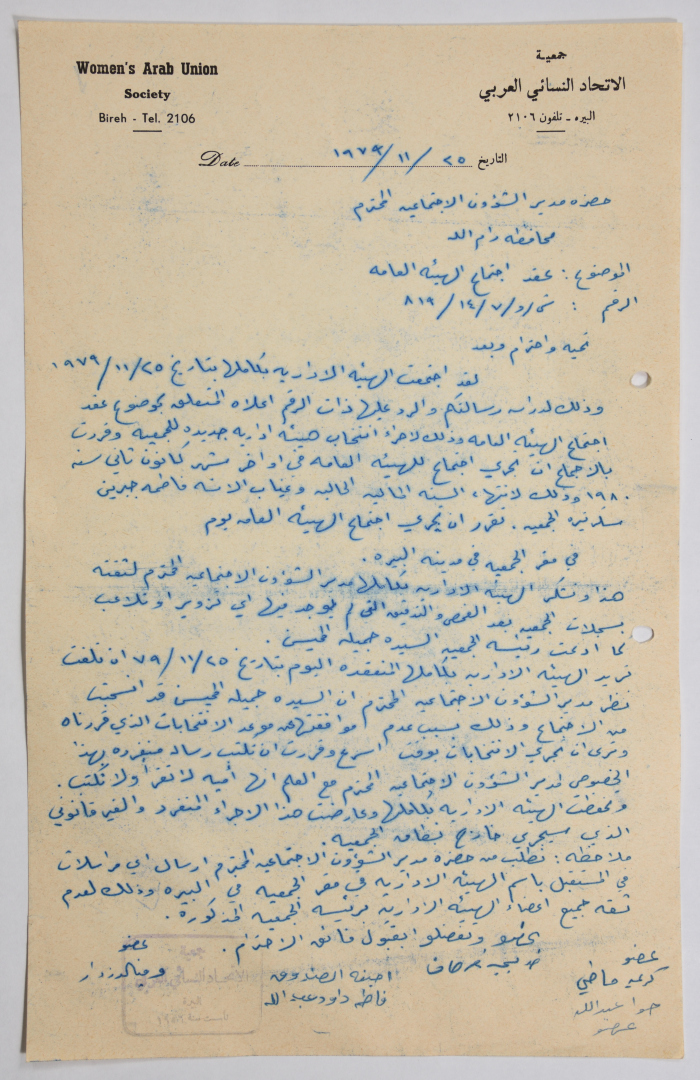 Women's Arab Union
Society
Bireh - Tel. 2106
جمعية
الاتحاد النسائي العربي
البيره ـ تلفون ٢١٠٦
Date ١٩٧٩/١١/٢٥ التاريخ
حضرة مدير الشؤون الاجتماعيه المحترم
محافظة رام الله
الموضوع : عقد اجتماع الهيئه العامه
الرقم : ش/و/١٤/٧/٨١٩
تحيه واحترام وبعد
لقد اجتمعت الهيئه الاداريه بكاملها بتاريخ ١٩٧٩/١١/٢٥
وذلك لدراسة رسالتكم والرد عليها ذات الرقم اعلاه المتعلق بموضوع عقد
اجتماع الهيئه العامه وذلك لاجراء انتخاب هيئه اداريه جديده للجمعيه وقررت
بالاجماع ان يجري اجتماع للهيئه العامه في اواخر شهر كانون ثاني سنه
١٩٨٠ وذلك لانتهاء السنه الماليه الحاليه وغياب الانسه فاطمه جبرين
سكرتيرة الجمعيه . تقرر ان يجري اجتماع الهيئه العامه يوم
في مقر الجمعيه في مدينه البيره .
هذا وتشكر الهيئه الاداريه بكاملها مدير الشؤون الاجتماعيه المحترم لثقته
بسجلات الجمعيه بعد الفحص والتدقيق التي لم يوجد فيها اي تزوير او تلاعب
كما ادعت رئيسة الجمعيه السيده جميله الخميس .
تريد الهيئه الاداريه بكاملها المنعقده اليوم بتاريخ ٧٩/١١/٢٥ ان تلفت
نظر مدير الشؤون الاجتماعيه المحترم ان السيده جميله الخميس قد انسحبت
من الاجتماع وذلك بسبب عدم موافقتها على موعد الانتخابات الذي قررناه
وترى ان تجري الانتخابات بوقت اسرع وقررت ان تكتب رساله منفرده بهذا
الخصوص لمدير الشؤون الاجتماعيه المحترم مع العلم انها أميه لا تقرأ ولا تكتب .
وتحفظت الهيئه الاداريه بكاملها وعارضت هذا الاجراء المنفرد والغير قانوني
الذي سيجري خارج نطاق الجمعيه .
ملاحظه : نطلب من حضرة مدير الشؤون الاجتماعيه المحترم ارسال اي مراسلات
في المستقبل باسم الهيئه الاداريه في مقر الجمعيه في البيره وذلك لعدم
ثقة جميع اعضاء الهيئه الاداريه برئيسة الجمعيه المذكورة .
وتفضلوا بقبول فائق الاحترام .
عضو
كريمه ماضي
حوا عبدالله
عضو
عضو
امينة الصندوق
فاطمه داود عبد الله
عضو
جمعية
الاتحاد النسائي العربي
البيرة